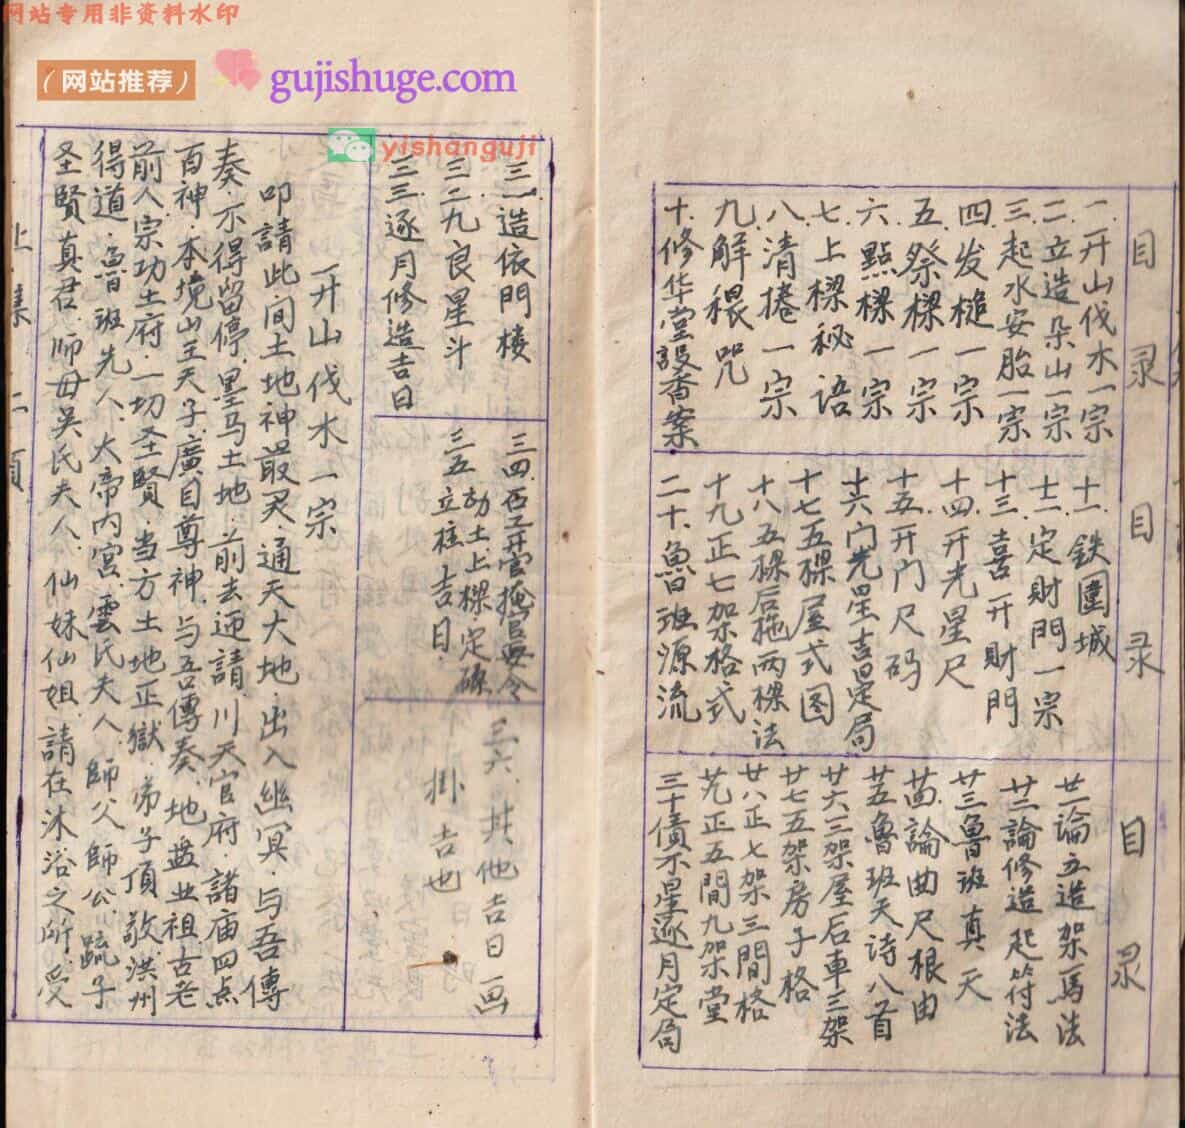 网站专用非资料水印
（网站推荐）
gujishuge.com
yishanguji
目录
一.开山伐木一宗
二.立造朵山一宗
三.起水安胎一宗
四.发槌一宗
五.祭樑一宗
六.點樑一宗
七.上樑秘语
八.清捲一宗
九.解穢咒
十.修华堂設香案
目录
十一.鉄圍城
十二.定財門一宗
十三.喜开財門
十四.开光星尺
十五.开门尺码
十六门光星吉星定局
十七五樑屋式图
十八五樑后拖两樑法
十九正七架格式
二十.魯班源流
目录
廿一論立造架馬法
廿二論修造起符法
廿三魯班真天
廿四論曲尺根由
廿五魯班天诗八首
廿六三架屋后車三架
廿七五架房子格
廿八正七架三間格
廿九正五間九架堂
三十債不星逐月定局
三一造依門楼
三二九良星斗
三三逐月修造吉日
三四
三五动土上樑.定磉
立柱吉日.
三六.其他吉日画
掛吉也
开山伐木一宗
叩請此间土地神最灵.通天大地.出入幽冥.与吾傳
奏.不得留停.黑马土地.前去迎請.川天官府.諸庙四点
百神.本境山王天子.廣目尊神.与吾傳奏.地盘业祖.古老
前人.宗功土府.一切圣賢.当方土地正獄.弟子頂敬.洪州
得道.魯班先人.大帝内宫.雲氏夫人.師父師公.踈子
圣賢真君.師母吴氏夫人.仙妹仙姐.請在沐浴之所.受